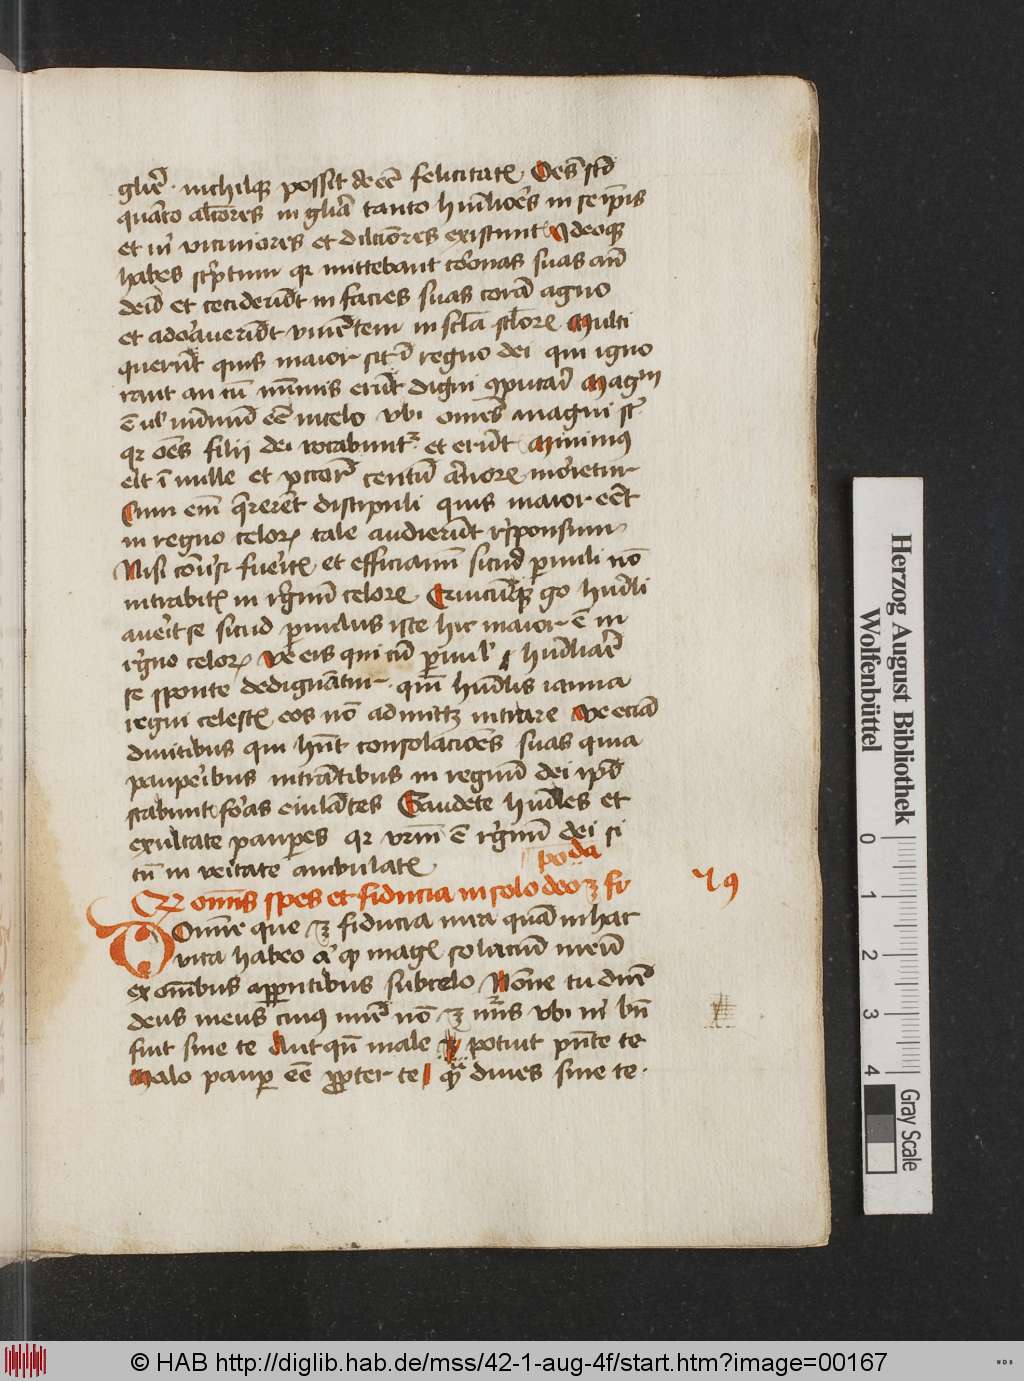 gliē · nichilqꝫ possit deēē felicitatꝫ Oēs sci
quāto alciores in gliā tanto huīliores in se ip̄is
et m̄ viciniores et dilcōres existunt Ideoqꝫ
habes sc̄ptum qꝛ mittebant coronas suas an̄
deū et ceciderūt in facies suas corā agno
et adoraverūt viuētem in scl̄a scl̄orꝫ Multi
querūt quis maior sit ī regno dei qui igno
rant an cū minimis erūt digni ꝯputari Magᵐ
ē ul̄ minimū ēē in celo vbi om̄es magni st̄
qꝛ oēs filii dei vocabunt᷑ et erūt Minimus
eīt ī mille et pccor̄ centū anorꝫ morietur
Cum em̄ q̄rerēt discipuli quis maior eēt
in regno celorꝫ tale audierūt rn̄sponsum
Nisi cōu̓si fueritꝫ et efficiamī sicud paruuli nō
intrabitꝫ in regnū celorꝫ Quicūqꝫ go huīli
auerit se sicud paruulus iste hic maior ē in
regno celorꝫ Ve eis qui cū paruul̓ huīliare
se sponte dedignātur · qm̄ huīlis ianua
regni celestꝫ eos nō admittꝫ intrare Ve eciā
diuitibus qui hn̄t consolacōes suas quia
pauperibus intrātibus in regnū dei ipi
stabunt foras eiulātes Gaudete huīles et
exultate pauperes qꝛ vrm̄ ē regnū dei si
tn̄ in veritate ambulatꝫ
Qꝫ om̄is spes et fiducia in solo deo ꝫ fi
po da
79
Domine que ꝫ fiducia mea quā in hac
vita habeo aꝰ qꝫ magꝫ solaciū meū
ex om̄ibus apparentibus sub celo Nōne tu dn̄e
deus meus cuiꝰ mīe nō ꝫ nūs vbi m̄ bn̄
fuit sine te Aut qn̄ male potuit pn̄te te
Malo pauper ēē propter te qᷓ diues sine te ·
Herzog August Bibliothek
Wolfenbüttel
0 1 2 3 4
Gray Scale
© HAB http://diglib.hab.de/mss/42-1-aug-4f/start.htm?image=00167